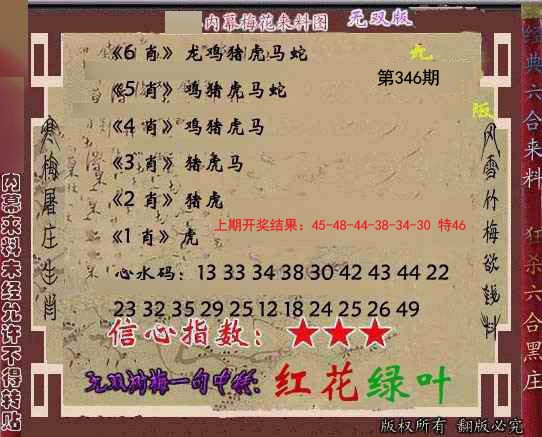 内幕梅花来料图 无双版
《6肖》 龙鸡猪虎马蛇
九
第346期
《5肖》 鸡猪虎马蛇
《4肖》 鸡猪虎马
《3肖》 猪虎马
《2肖》 猪虎
上期开奖结果：45-48-44-38-34-30 特46
《1肖》 虎
心水码：13 33 34 38 30 42 43 44 22
23 32 35 29 25 12 18 24 25 26 49
信心指数：★★★
红花绿叶
版权所有 翻版必究
寒梅屠庄生肖
风雪竹梅欲钱料
内幕来料未经允许不得转贴
经典六合来料
狂杀六合黑庄